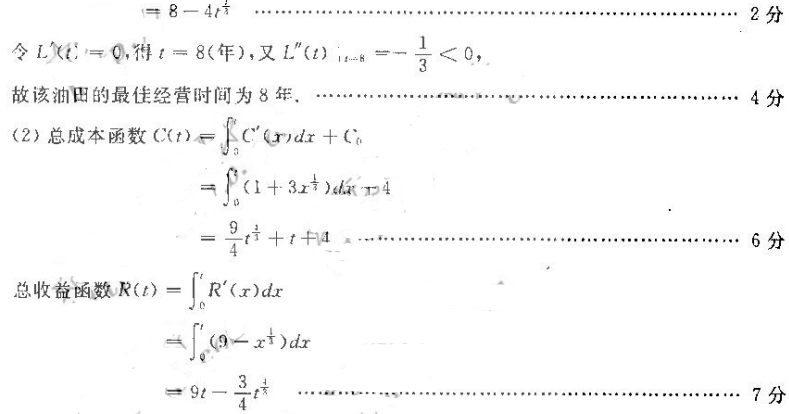 = 8 − 4t^{1/3} ………… 2 分
令 L′(t) = 0,得 t = 8(年),又 L″(t)|_{t=8} = −1/3 < 0,
故该油田的最佳经营时间为 8 年. ………… 4 分
(2) 总成本函数 C(t) = ∫_0^t C′(x)dx + C₀
= ∫_0^t (1 + 3x^{1/3})dx + 4
= 9/4 t^{4/3} + t + 4 ………… 6 分
总收益函数 R(t) = ∫_0^t R′(x)dx
= ∫_0^t (9 − x^{1/3})dx
= 9t − 3/4 t^{4/3} ………… 7 分